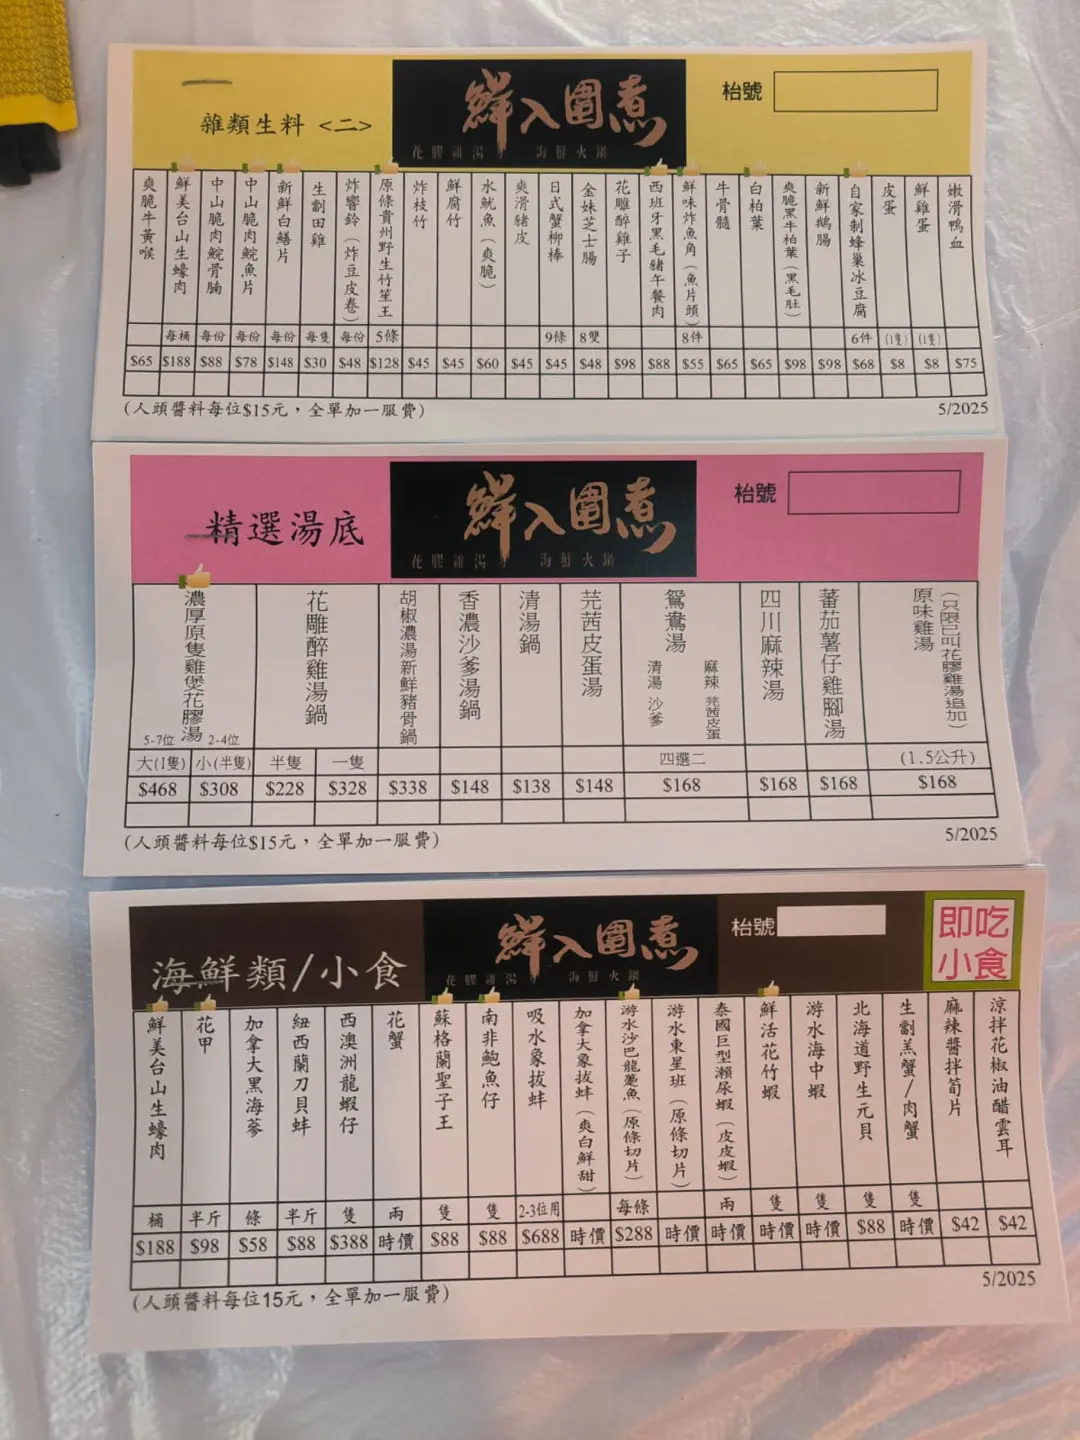 雜類生料 <二>
鮮入圍煮
花膠雞湯 海鮮火鍋
枱號
爽脆牛黃喉 $65
鮮美台山生蠔肉 每桶 $188
中山脆肉鯇骨腩 每份 $88
中山脆肉鯇魚片 每份 $78
新鮮白鱔片 每份 $148
生劏田雞 每隻 $30
炸響鈴（炸豆皮卷） 每份 $48
原條貴州野生竹笙王 5條 $128
炸枝竹 $45
鮮腐竹 $45
水魷魚（爽脆） $60
爽滑豬皮 $45
日式蟹柳棒 9條 $45
金妹芝士腸 8雙 $48
花雕醉雞子 $98
西班牙黑毛豬午餐肉 $88
鮮味炸魚角（魚片頭） 8件 $55
牛骨髓 $65
白柏葉 $65
爽脆黑牛柏葉（黑毛肚） $98
新鮮鵝腸 $98
自家制蜂巢冰豆腐 6件 $68
皮蛋 (1隻) $8
鮮雞蛋 (1隻) $8
嫩滑鴨血 $75
(人頭醬料每位$15元，全單加一服費)
5/2025
精選湯底
鮮入圍煮
花膠雞湯 海鮮火鍋
枱號
濃厚原隻雞煲花膠湯
5-7位 2-4位
大(1隻) $468
小(半隻) $308
花雕醉雞湯鍋
半隻 $228
一隻 $328
胡椒濃湯新鮮豬骨鍋 $338
香濃沙爹湯鍋 $148
清湯鍋 $138
芫茜皮蛋湯 $148
鴛鴦湯
麻辣 芫茜皮蛋
清湯 沙爹
四選二 $168
四川麻辣湯 $168
蕃茄薯仔雞腳湯 $168
(只限已叫花膠雞湯追加)
原味雞湯
(1.5公升) $168
(人頭醬料每位$15元，全單加一服費)
5/2025
海鮮類/小食
鮮入圍煮
花膠雞湯 海鮮火鍋
枱號
即吃
小食
鮮美台山生蠔肉 桶 $188
花甲 半斤 $98
加拿大黑海蔘 條 $58
紐西蘭刀貝蚌 半斤 $88
西澳洲龍蝦仔 隻 $388
花蟹 兩 時價
蘇格蘭聖子王 隻 $88
南非鮑魚仔 隻 $88
吸水象拔蚌 2-3位用 $688
加拿大象拔蚌（爽白鮮甜） 時價
游水沙巴龍躉魚（原條切片） 每條 $288
游水東星班（原條切片） 時價
泰國巨型瀨尿蝦（皮皮蝦） 兩 時價
鮮活花竹蝦 隻 時價
游水海中蝦 隻 時價
北海道野生元貝 隻 $88
生劏羔蟹/肉蟹 隻 時價
麻辣醬拌荀片 $42
涼拌花椒油醋雲耳 $42
(人頭醬料每位15元，全單加一服費)
5/2025